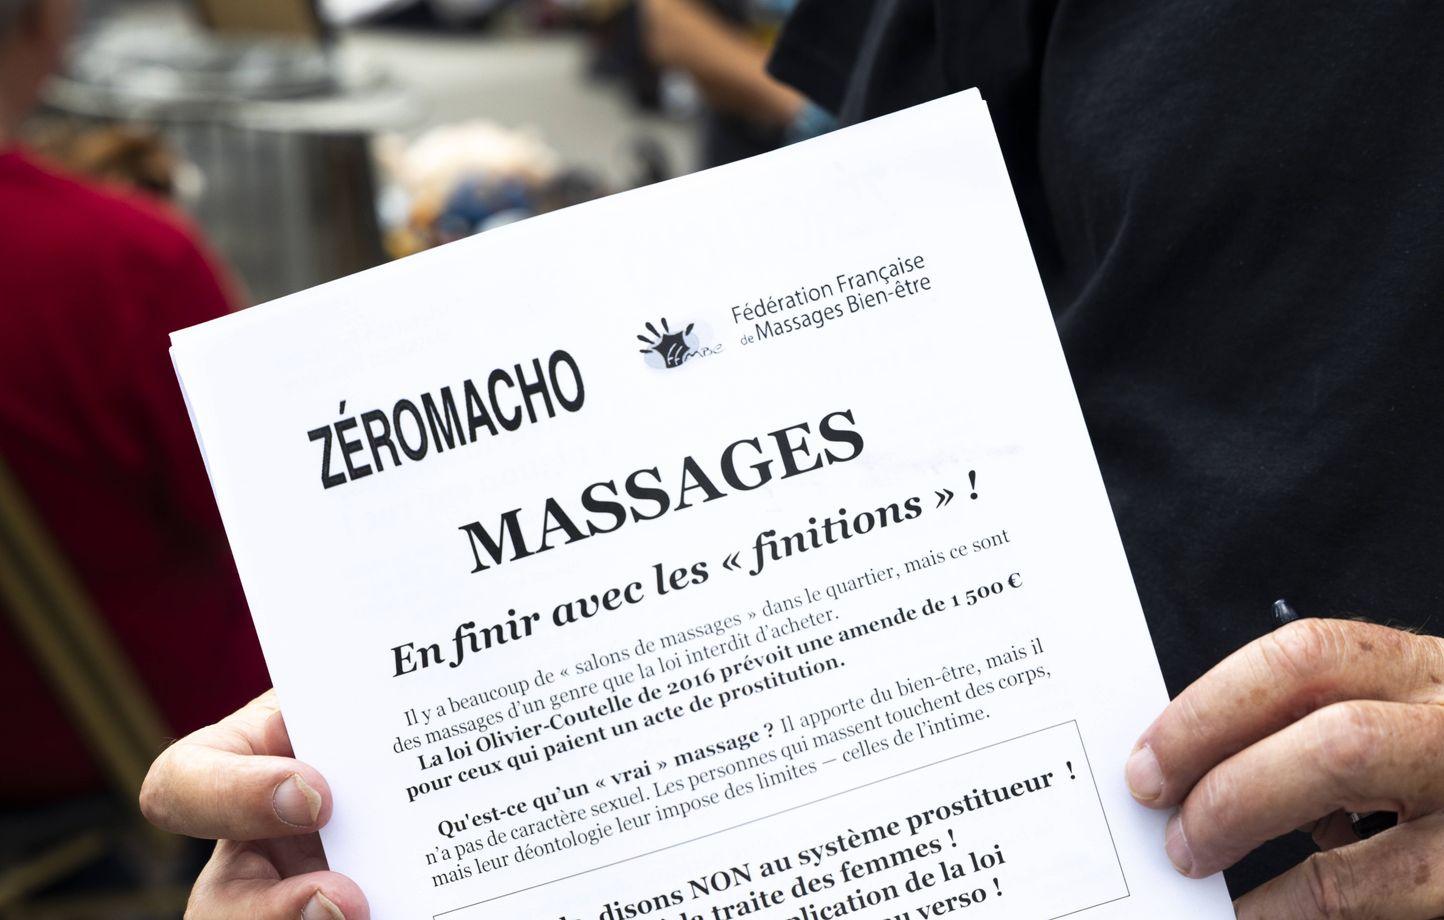 ZÉROMACHO
ffMBE
Fédération Française
de Massages Bien-être
MASSAGES
En finir avec les « finitions » !
Il y a beaucoup de « salons de massages » dans le quartier, mais ce sont
des massages d'un genre que la loi interdit d'acheter.
La loi Olivier-Coutelle de 2016 prévoit une amende de 1 500 €
pour ceux qui paient un acte de prostitution.
Qu'est-ce qu'un « vrai » massage ? Il apporte du bien-être, mais il
n'a pas de caractère sexuel. Les personnes qui massent touchent des corps,
mais leur déontologie leur impose des limites – celles de l'intime.
disons NON au système prostitueur !
traite des femmes !
de la loi
verso !